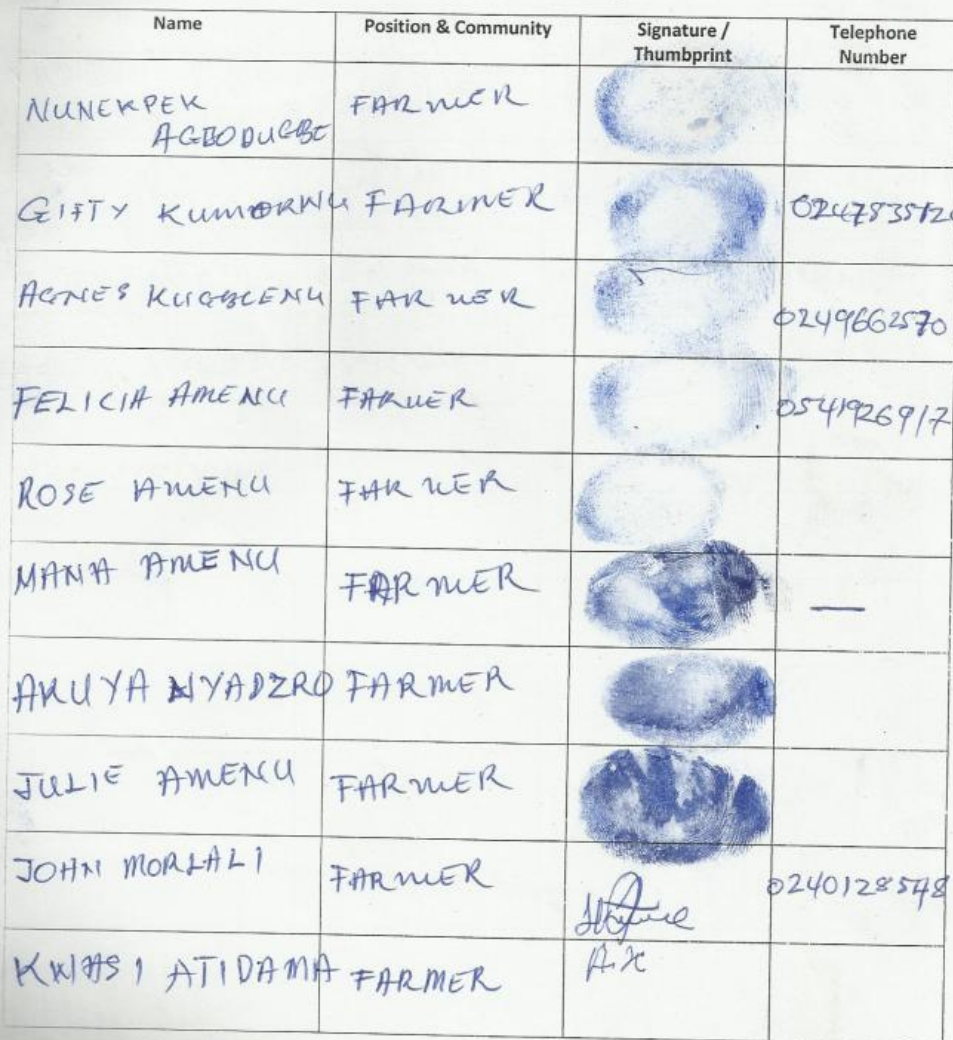 Name Position & Community Signature / Telephone
Thumbprint Number
NUNEKPEK FARMER
AGBODUGBE
GIFTY KUMORNU FARMER
AGNES KUGBLENU FARMER 0249662570
FELICIA AMENU FARMER 0541926917
ROSE AMENU FARMER
MANA AMENU FARMER —
AKUYA NYADZRO FARMER
JULIE AMENU FARMER
JOHN MORLALI FARMER 0240128548
KWASI ATIDAMA FARMER A.K